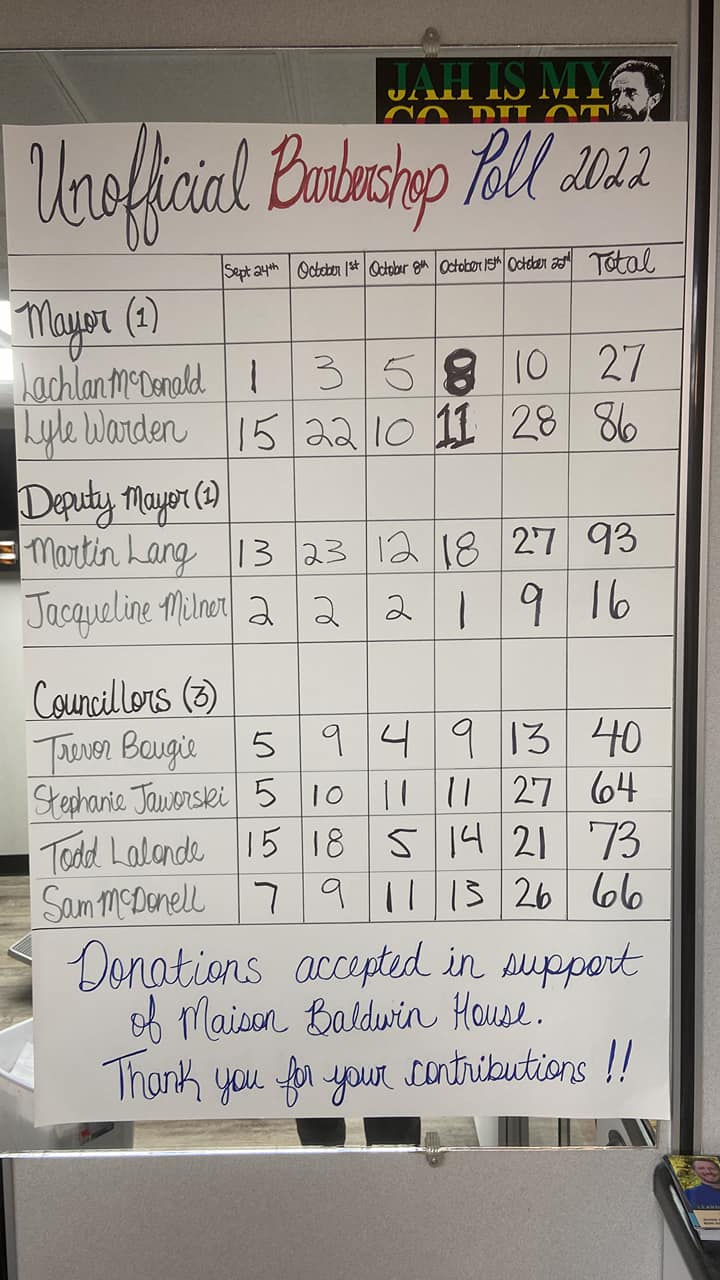 JAH IS MY
CO-PILOT
Unofficial Barbershop Poll 2022
Sept 24th October 1st October 8th October 15th October 22nd Total
Mayor (1)
Lachlan McDonald 1 3 5 8 10 27
Lyle Warden 15 22 10 11 28 86
Deputy Mayor (1)
Martin Lang 13 23 12 18 27 93
Jacqueline Milner 2 2 2 1 9 16
Councillors (3)
Trevor Bougie 5 9 4 9 13 40
Stephanie Jaworski 5 10 11 11 27 64
Todd Lalonde 15 18 5 14 21 73
Sam McDonell 7 9 11 13 26 66
Donations accepted in support
of Maison Baldwin House.
Thank you for your contributions !!